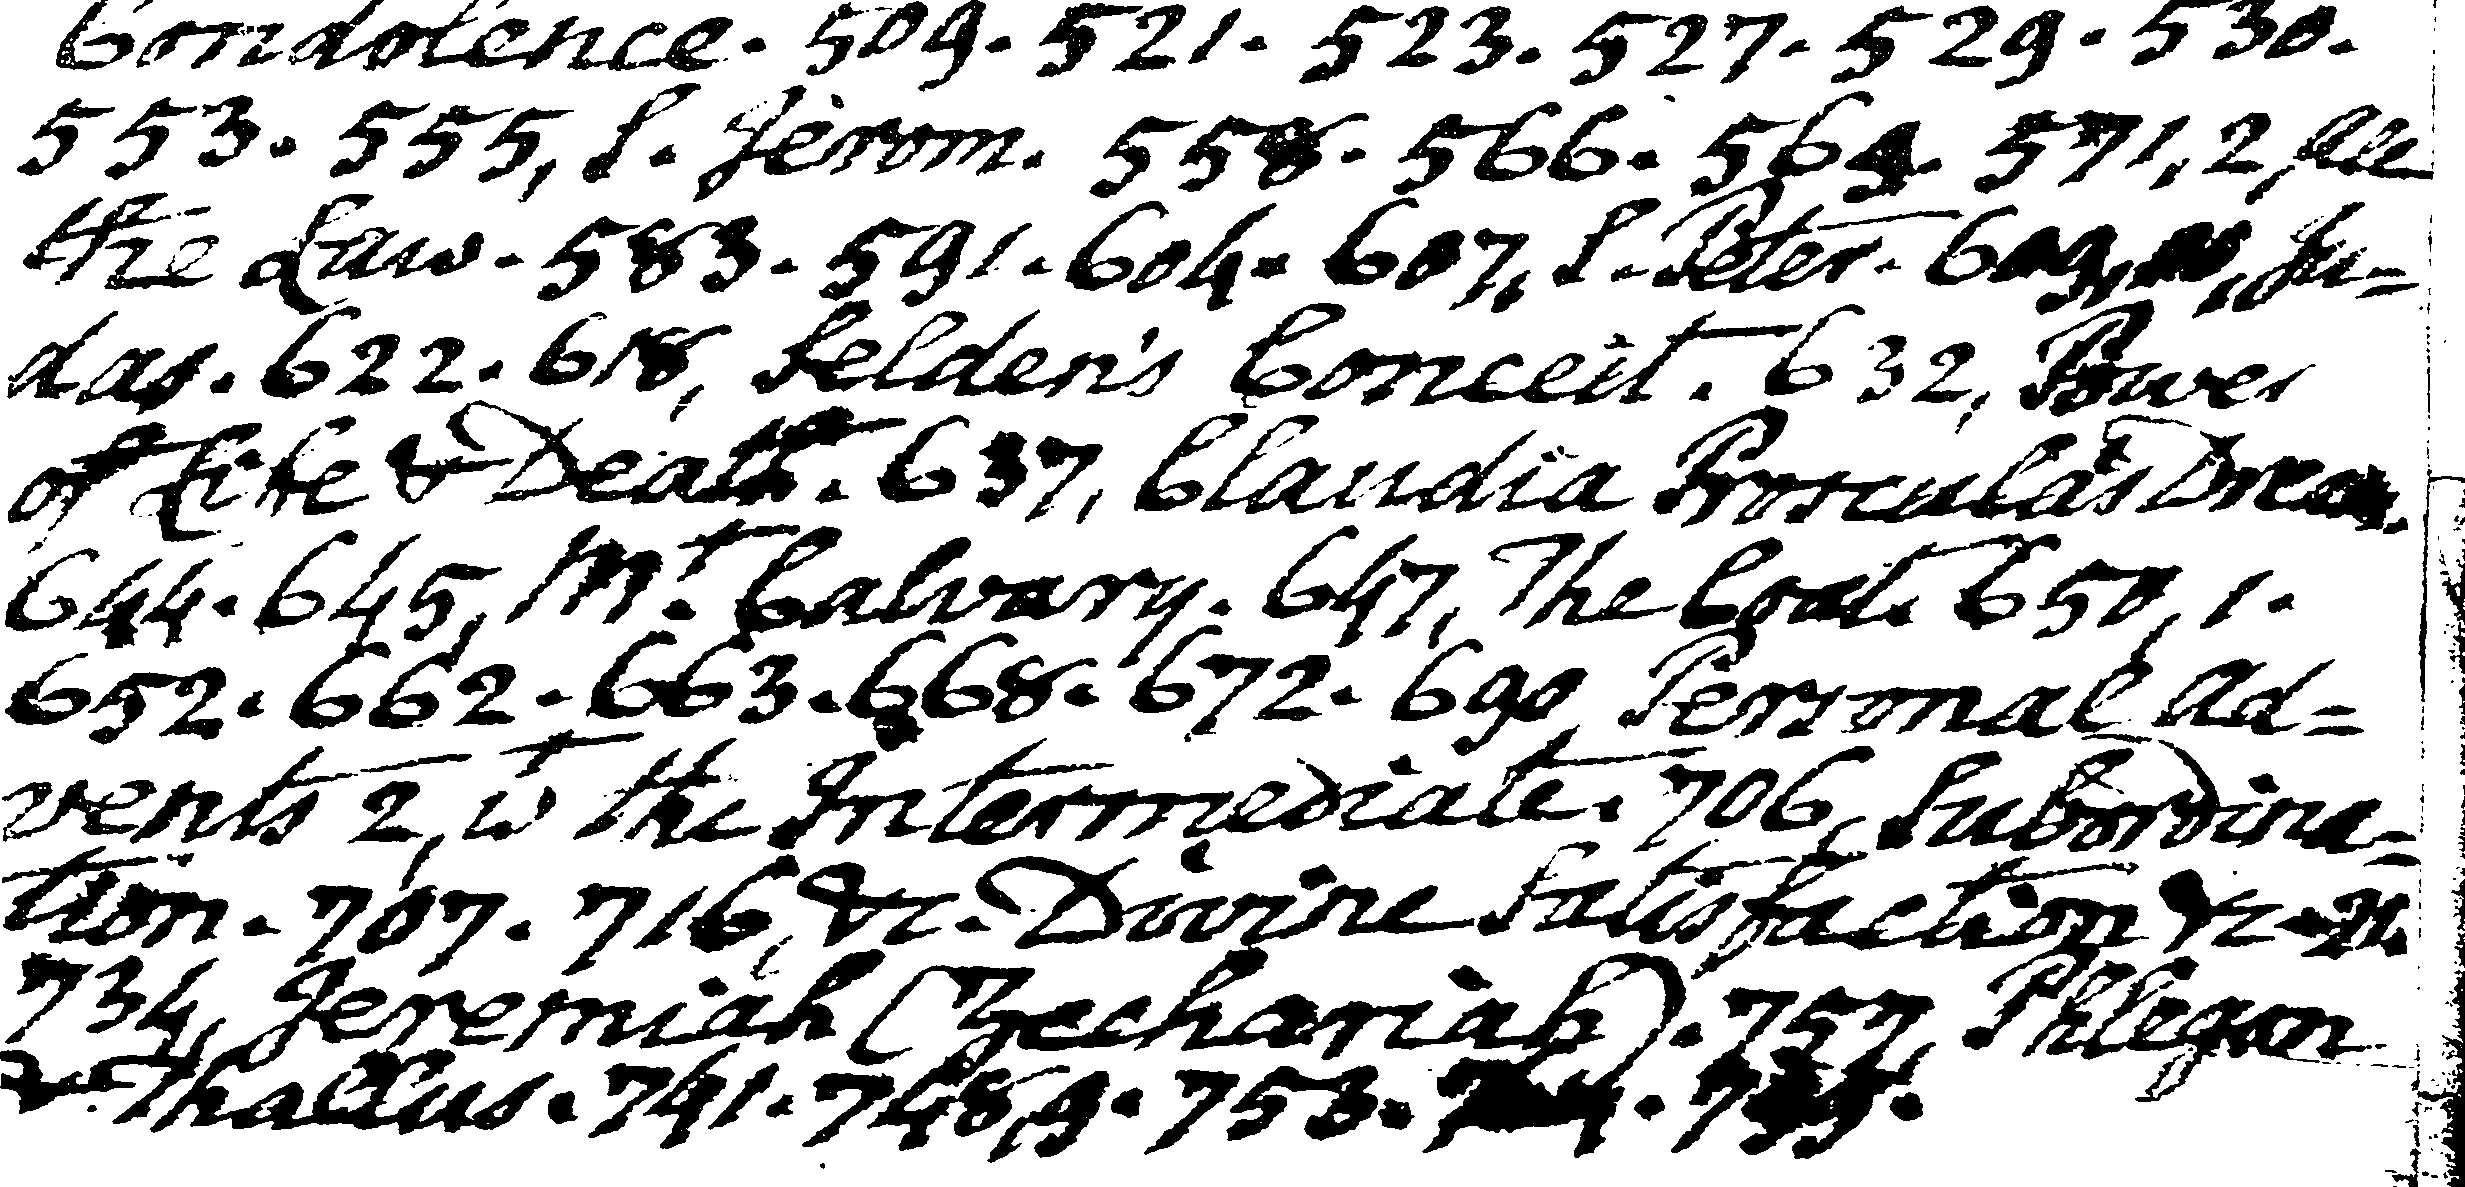 Condolence. 509. 521. 523. 527. 529. 530.
553. 555, S. Jerom. 558. 566. 569. 571, 2, see
the Law. 583. 591. 604. 607, S. Peter. 609, 10, Ju=
das. 622. 618, Selden's Conceit. 632, Power
of Life & Death. 637, Claudia Proscula's Dream.
644. 645, Mt. Calvary. 647, The Coat. 650, 1.
652. 662. 663. 668. 672. 690 Personal Ad=
vents 2, w the Intermediate. 706, Subordina=
tion. 707. 716, &c. Divine Satisfaction &c.
734, Jeremiah (Zechariah). 757, Phlegon
& Thallus. 741. 748, 9. 753.